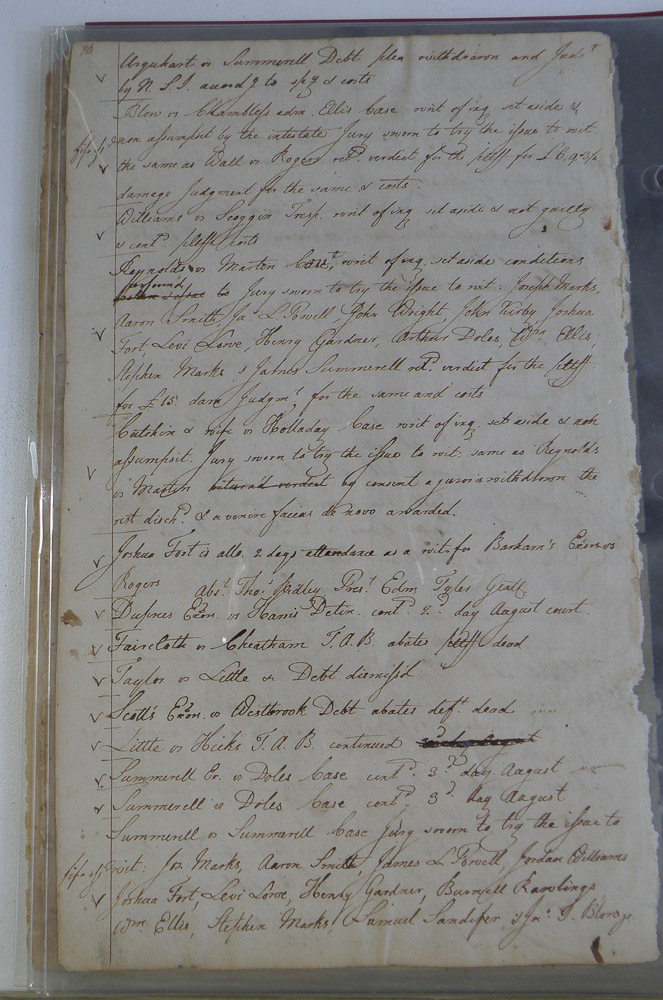 Urquhart vs Summerell Debt plea withdrawn and Judt
by N. S. I. accord.g to spy & costs
Blow vs Chambless adm. Ellis Case writ of inq. set aside &
non assumpsit by the intestate Jury sworn to try the issue to wit
the same as Wall vs Rogers retd. verdict for the pltff for £
damage Judgment for the same & costs.
Williams vs Scoggin Tresp. writ of inq set aside & not guilty
& contd. pltffs costs
Reynolds vs Martin Case, writ of inq. set aside conditions
perform'd
to Jury sworn to try the issue to wit: Joseph Marks,
Aaron Smith, Jas L. Powell, John Wright, John Kirby, Joshua
Fort, Levi Lowe, Henry Gardner, Arthur Doles, Wm. Ellis,
Stephen Marks & James Summerell retd. verdict for the pltff.
for £15. dam Judgmt for the same and costs
Cutchin & wife vs Holladay Case writ of inq. set aside & non
assumpsit. Jury sworn to try the issue to wit: same as Reynolds
vs Martin return'd verdict by consent a juror is withdrawn the
rest dischd. & a venire facias de novo awarded.
Joshua Fort is allo. 2 days attendance as a witn. for Barham's Exors vs
Rogers abst. Thos. Ridley Prest. Edm. Tyler Gentl.
Duprees Exor. vs Harris Detin. contd. 2d. day August court
Faircloth vs Cheatham T. A. B. abates pltff dead
Taylor vs Little Debt dismiss'd
Scott's Exor. vs Westbrook Debt abates deft. dead
Little vs Hicks T. A. B. continued
Summerell Ex. vs Doles Case contd. 3d. day August
Summerell vs Doles Case contd. 3d. day August
Summerell vs Summerell Case Jury sworn to try the issue to
wit: Jos. Marks, Aaron Smith, James L. Powell, Jordan Williams
Joshua Fort, Levi Lowe, Henry Gardner, Burwell Rawlings
Wm. Ellis, Stephen Marks, Samuel Sandifer, & Jno. T. Blow